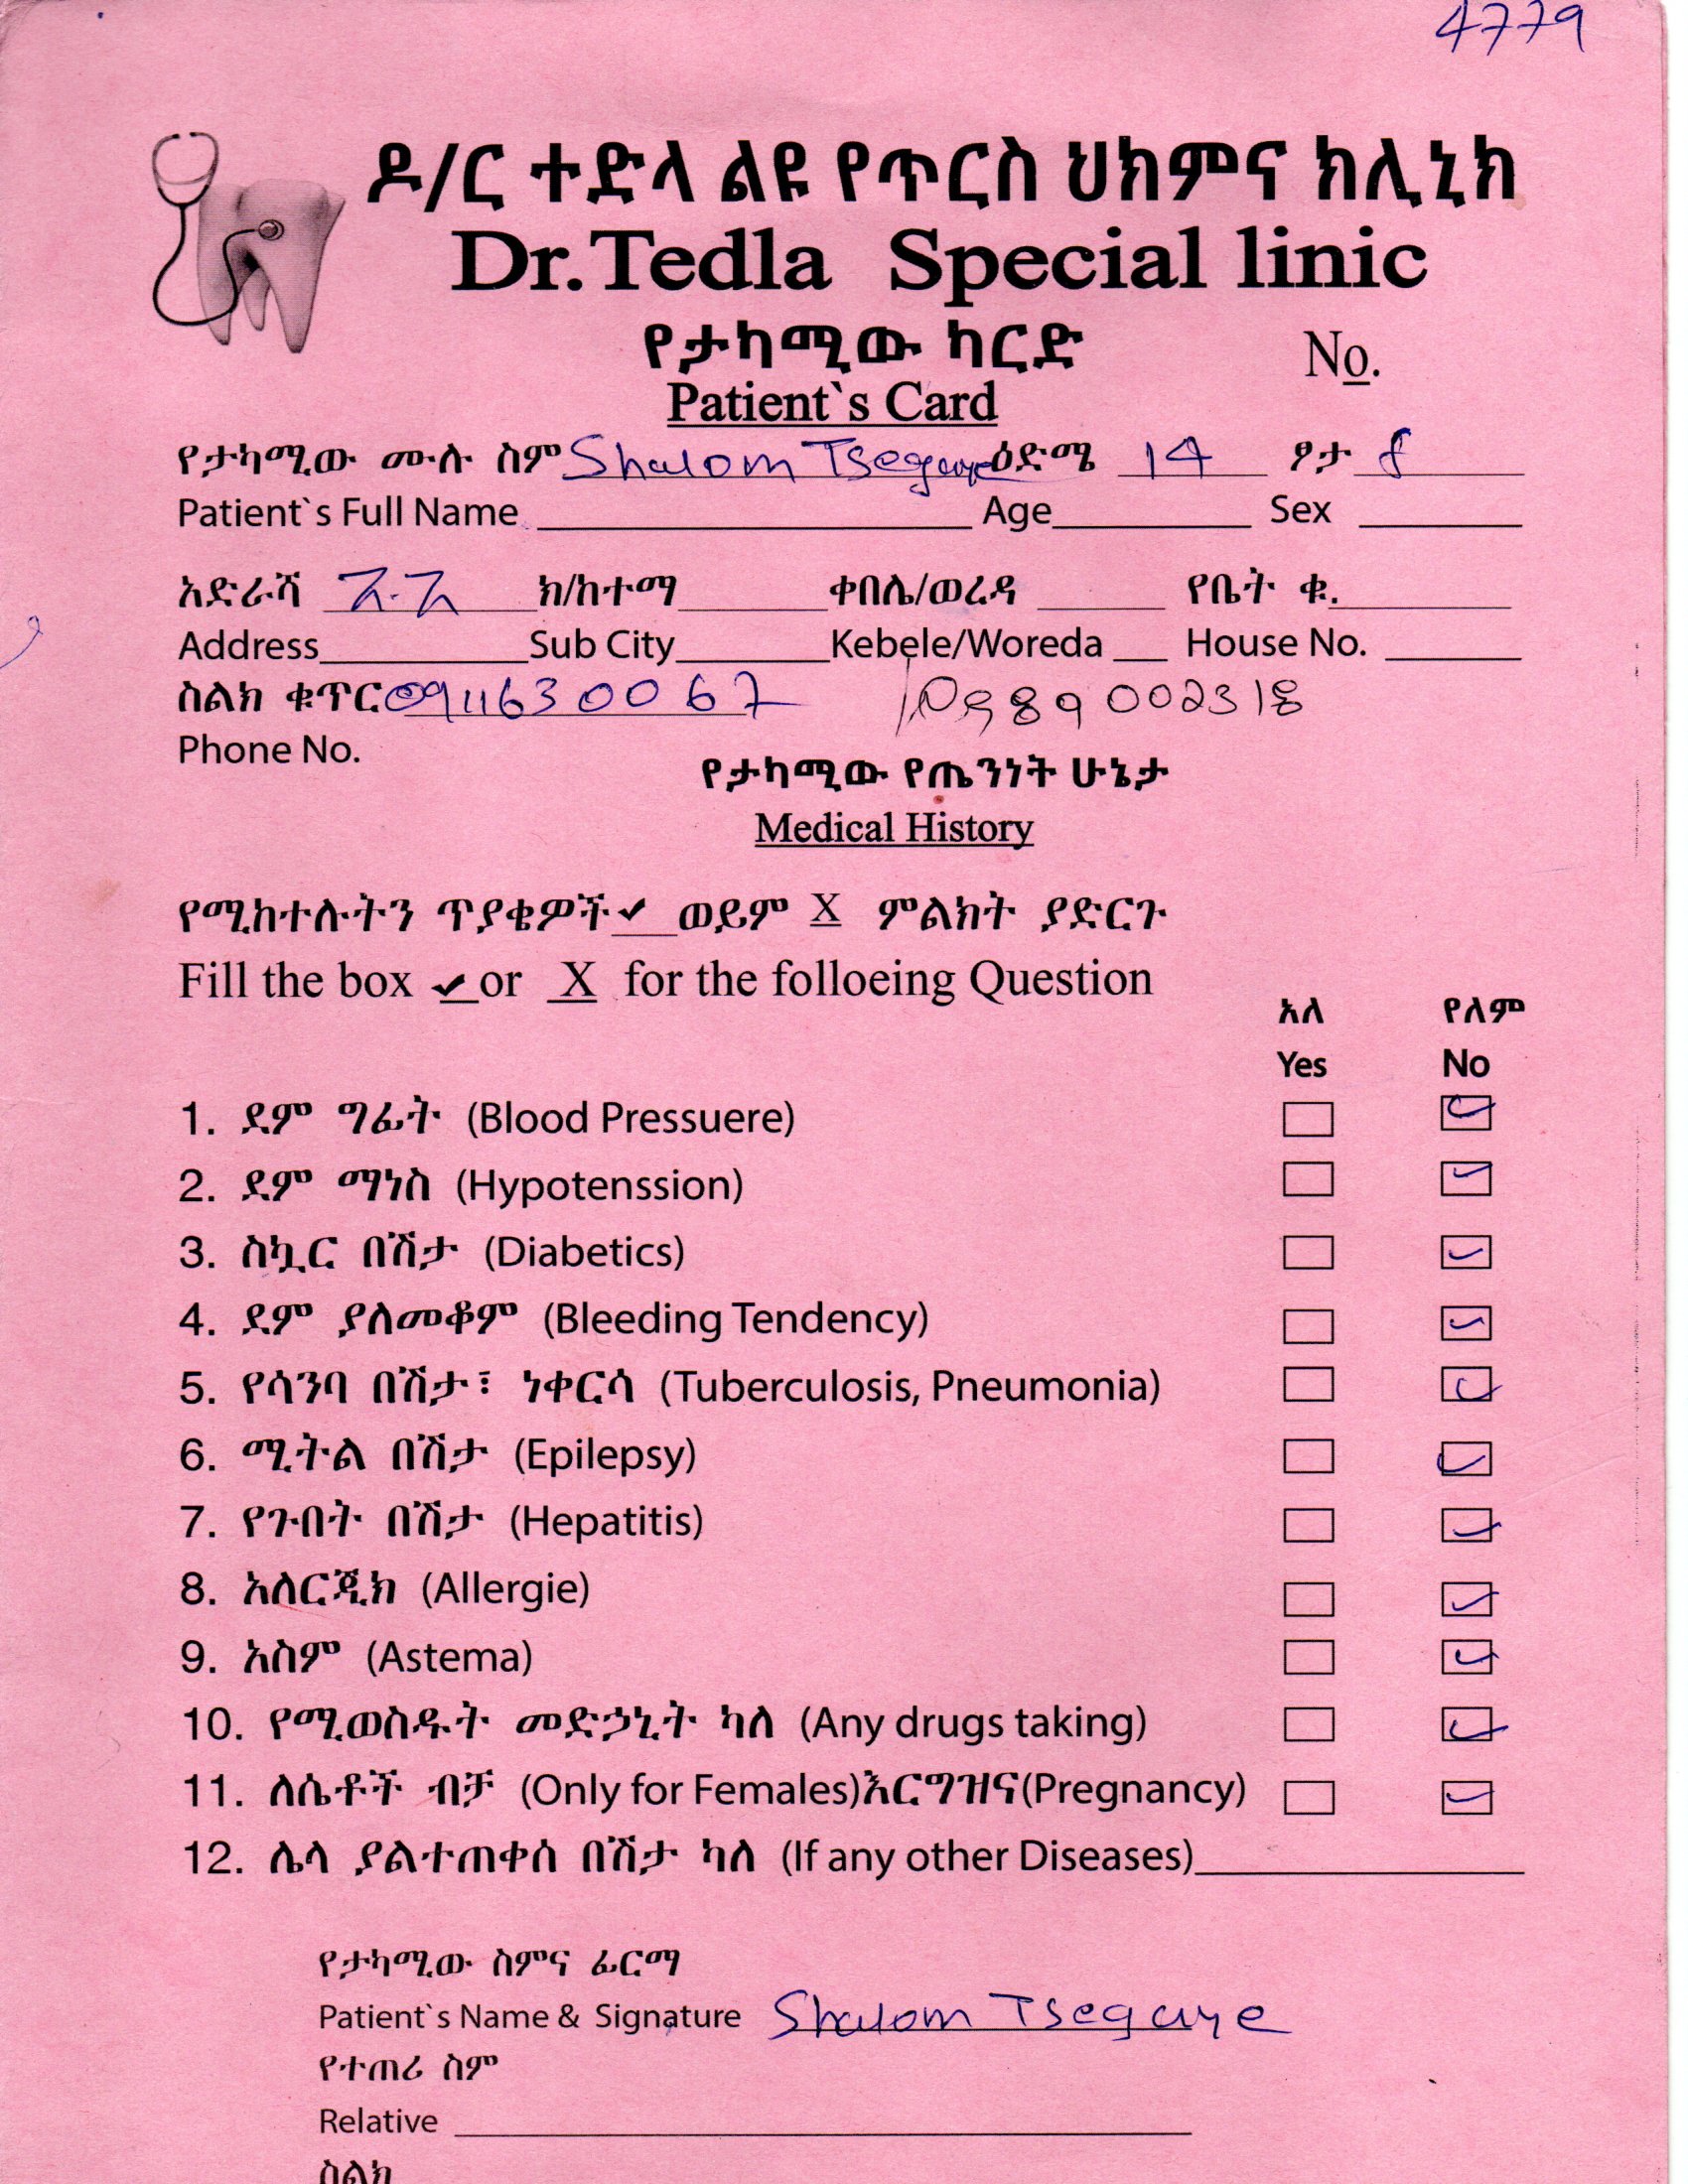 4779
ዶ/ር ተድላ ልዩ የጥርስ ህክምና ክሊኒክ
Dr.Tedla Special linic
የታካሚው ካርድ
No.
Patient`s Card
የታካሚው ሙሉ ስም Shalom Tsegaye ዕድሜ 14 ፆታ f
Patient`s Full Name Age Sex
አድራሻ ክ/ከተማ ቀበሌ/ወረዳ የቤት ቁ.
Address Sub City Kebele/Woreda House No.
ስልክ ቁጥር 0911630067 / 0989002318
Phone No.
የታካሚው የጤንነት ሁኔታ
Medical History
የሚከተሉትን ጥያቄዎች ✓ ወይም X ምልክት ያድርጉ
Fill the box ✓ or X for the folloeing Question
አለ የለም
Yes No
1. ደም ግፊት (Blood Pressuere) ✓
2. ደም ማነስ (Hypotenssion) ✓
3. ስኳር በሽታ (Diabetics) ✓
4. ደም ያለመቆም (Bleeding Tendency) ✓
5. የሳንባ በሽታ፣ ነቀርሳ (Tuberculosis, Pneumonia) ✓
6. ሚትል በሽታ (Epilepsy) ✓
7. የጉበት በሽታ (Hepatitis) ✓
8. አለርጂክ (Allergie) ✓
9. አስም (Astema) ✓
10. የሚወስዱት መድኃኒት ካለ (Any drugs taking) ✓
11. ለሴቶች ብቻ (Only for Females)እርግዝና(Pregnancy) ✓
12. ሌላ ያልተጠቀሰ በሽታ ካለ (If any other Diseases)
የታካሚው ስምና ፊርማ
Patient`s Name & Signature Shalom Tsegaye
የተጠሪ ስም
Relative
ስልክ